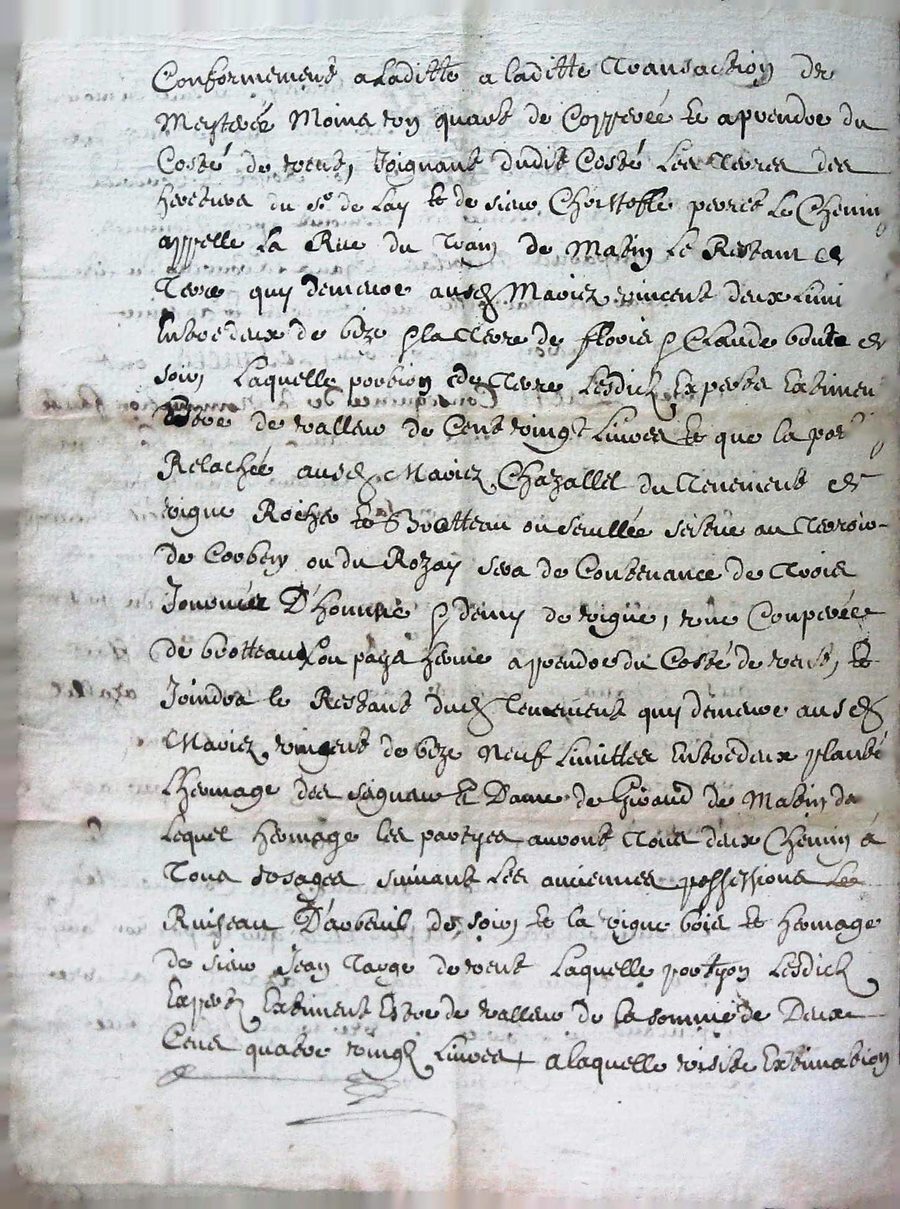 Conformement a laditte a laditte Transaction de
Meyterée Moins un quart de Copperée et a prendre du
Costé de vent, Joignant dudit Costé Les Terres des
heretiers du Sr de Lay et de sieur Christoffle perret Le Chemin
appelle La Rue du Train de Matin Le Restant de
Terre quy demeure ausd Mariez vincent deux Limi
Entredeux de bize & la Terre de fleurie & Claude boute de
soir, Laquelle portion de Terre Lesdicts Experts Extiment
Estre de valleur de Cent vingt Livres et que la por
Relachée ausd Mariez Chazallet du Tenement de
vigne Rocher et Brotteau ou seullée scitue au Terroir
de Corbery ou du Rozay sera de Contenance de Trois
Journée D'homme & demy de vigne, une Couperée
de brotteau Lon paya herme a prendre du Costé de vent, et
Joindra le Restant dud Tenement quy demeure ausd
Mariez vincent de bize Neuf Limittes Entredeux planté
L'hermage des seigneur & Dame de Giraud de Matin da
Lequel hermage les partyes auront Tous deux Chemin a
Tous Usages suivant Les anciennes possessions Le
Ruisseau D'arbeuil de soir, et la vigne bois et hermage
de sieur Jean Targe de vent Laquelle portyon Lesdicts
Experts Extiment Estre de valleur de la somme de Deux
Cens quatre vingt Livres + a laquelle visite Extimation